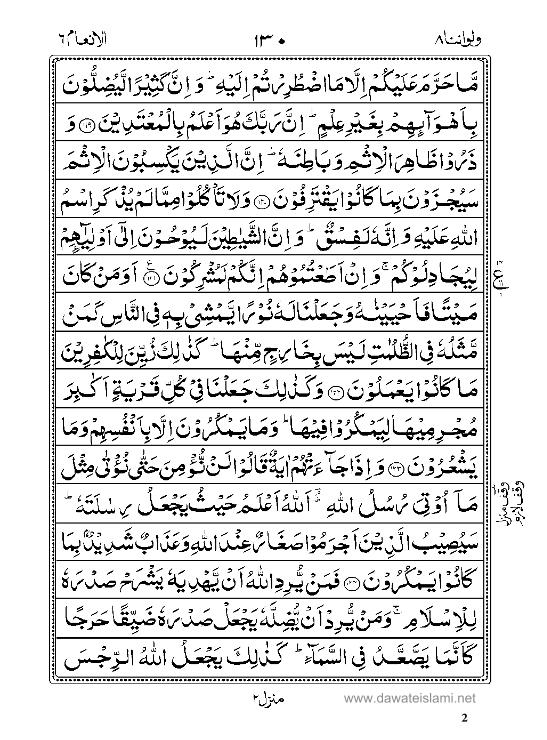 ولواننا ٨
١٣٠
الانعام ٦
مَّا حَرَّمَ عَلَيْكُمْ اِلَّا مَا اضْطُرِرْتُمْ اِلَيْهِ ؕ وَ اِنَّ كَثِيْرًا لَّيُضِلُّوْنَ
بِاَهْوَآىِٕهِمْ بِغَيْرِ عِلْمٍ ؕ اِنَّ رَبَّكَ هُوَ اَعْلَمُ بِالْمُعْتَدِيْنَ ﴿۱۱۹﴾ وَ
ذَرُوْا ظَاهِرَ الْاِثْمِ وَ بَاطِنَهٗ ؕ اِنَّ الَّذِيْنَ يَكْسِبُوْنَ الْاِثْمَ
سَيُجْزَوْنَ بِمَا كَانُوْا يَقْتَرِفُوْنَ ﴿۱۲۰﴾ وَلَا تَاْكُلُوْا مِمَّا لَمْ يُذْكَرِ اسْمُ
اللّٰهِ عَلَيْهِ وَ اِنَّهٗ لَفِسْقٌ ؕ وَ اِنَّ الشَّيٰطِيْنَ لَيُوْحُوْنَ اِلٰۤى اَوْلِيٰٓـِٕهِمْ
لِيُجَادِلُوْكُمْ ۚ وَ اِنْ اَطَعْتُمُوْهُمْ اِنَّكُمْ لَمُشْرِكُوْنَ ﴿۱۲۱﴾ اَوَ مَنْ كَانَ
مَيْتًا فَاَحْيَيْنٰهُ وَجَعَلْنَا لَهٗ نُوْرًا يَّمْشِيْ بِهٖ فِي النَّاسِ كَمَنْ
مَّثَلُهٗ فِي الظُّلُمٰتِ لَيْسَ بِخَارِجٍ مِّنْهَا ؕ كَذٰلِكَ زُيِّنَ لِلْكٰفِرِيْنَ
مَا كَانُوْا يَعْمَلُوْنَ ﴿۱۲۲﴾ وَكَذٰلِكَ جَعَلْنَا فِيْ كُلِّ قَرْيَةٍ اَكٰبِرَ
مُجْرِمِيْهَا لِيَمْكُرُوْا فِيْهَا ؕ وَمَا يَمْكُرُوْنَ اِلَّا بِاَنْفُسِهِمْ وَمَا
يَشْعُرُوْنَ ﴿۱۲۳﴾ وَ اِذَا جَآءَتْهُمْ اٰيَةٌ قَالُوْا لَنْ نُّؤْمِنَ حَتّٰى نُؤْتٰى مِثْلَ
مَاۤ اُوْتِيَ رُسُلُ اللّٰهِ ؔۘ اَللّٰهُ اَعْلَمُ حَيْثُ يَجْعَلُ رِسٰلَتَهٗ ؕ
سَيُصِيْبُ الَّذِيْنَ اَجْرَمُوْا صَغَارٌ عِنْدَ اللّٰهِ وَعَذَابٌ شَدِيْدٌۢ بِمَا
كَانُوْا يَمْكُرُوْنَ ﴿۱۲۴﴾ فَمَنْ يُّرِدِ اللّٰهُ اَنْ يَّهْدِيَهٗ يَشْرَحْ صَدْرَهٗ
لِلْاِسْلَامِ ۚ وَمَنْ يُّرِدْ اَنْ يُّضِلَّهٗ يَجْعَلْ صَدْرَهٗ ضَيِّقًا حَرَجًا
كَاَنَّمَا يَصَّعَّدُ فِي السَّمَآءِ ؕ كَذٰلِكَ يَجْعَلُ اللّٰهُ الرِّجْسَ
منزل ٢
www.dawateislami.net
2